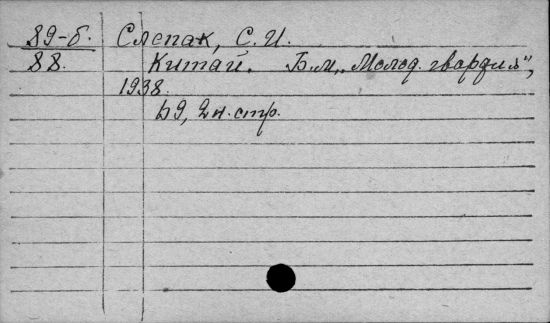 89-б. Слепак, С. И.
88. Китай. Б.м., „Молод. гвардия",
1938.
69, 2 н. стр.